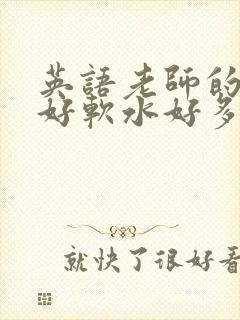 英語老師的
好軟水好多
就快了很好看